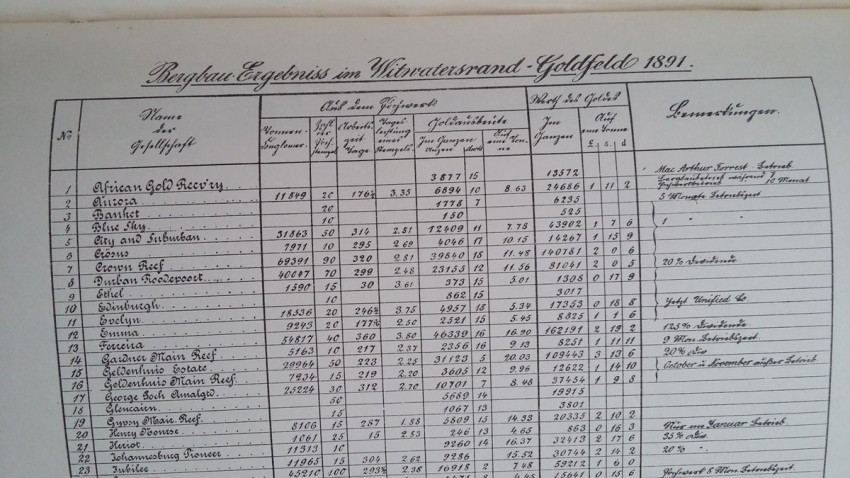 Bergbau-Ergebniss im Witwatersrand-Goldfeld 1891.
No Name der Gesellschaft Aus dem Pochwerk Werth des Goldes Bemerkungen.
Goldausbeute
Tonnen- Zahl der Arbeits- zeit Tage Tages leistung eines Stempels Im Ganzen Unzen dwts Auf eine Tonne Im Ganzen Auf eine Tonne
£ s d
1 African Gold Recv'ry 3877 15 13572 Mac Arthur Forrest-Betrieb
2 Aurora 11849 20 176½ 3.35 6894 10 8.63 24686 1 11 2 während 10 Monat
3 Banket 20 1778 7 6235 5 Monate Betriebszeit
4 Blue Sky 10 150 525 1 " "
5 City and Suburban 31863 50 314 2.81 12409 11 7.78 43902 1 7 6
6 Crösus 7971 10 295 2.69 4046 17 10.15 14267 1 15 9
7 Crown Reef 69391 90 320 2.81 39840 18 11.48 140781 2 0 6
8 Durban Roodepoort 40047 70 299 2.48 23155 12 11.56 81041 2 0 5 20% Dividende
9 Ethel 1590 15 30 3.61 373 15 5.01 1308 0 17 9
10 Edinburgh 10 862 15 3017
11 Evelyn 18336 20 246½ 3.75 4957 18 5.34 17353 0 18 8 Jetzt Unified Co.
12 Emma 9243 20 177½ 2.50 2521 15 5.45 8825 1 1 6
13 Ferreira 54817 40 360 3.80 46339 16 16.90 162191 2 19 2 125% Dividende
14 Gardner Main Reef 5163 10 217 2.37 2356 16 9.13 8251 1 11 11 9 Mon. Betriebszeit
15 Geldenhuis Estate 29964 50 223 2.25 31123 5 20.03 109443 3 13 6 20% Div
16 Geldenhuis Main Reef 7234 15 219 2.20 3605 12 9.96 12622 1 14 10 October u November außer Betrieb
17 George Goch Amalgtd 25224 30 312 2.70 10701 7 8.48 37454 1 9 8
18 Glencairn 50 5689 14 19915
19 Gypsy Main Reef 15 1067 13 3801
20 Henry Nourse 8106 15 287 1.88 5809 15 14.33 20335 2 10 2
21 Heriot 1061 25 15 2.83 246 13 4.65 863 0 16 3 Nur im Januar Betrieb
22 Johannesburg Pioneer 11313 10 9260 14 16.37 32413 2 17 6 35% Div.
23 Jubilee 11965 15 304 2.62 9286 15.52 30744 2 14 2 20% "
45210 100 293½ 2.38 16918 2 7.48 59212 1 6 0